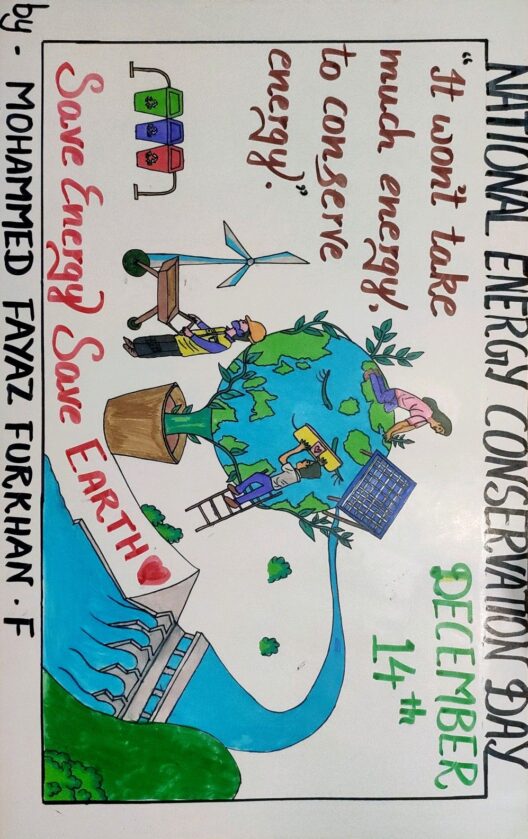 NATIONAL ENERGY CONSERVATION DAY
DECEMBER
14th
"It won't take
much energy,
to conserve
energy."
Save Energy Save EARTH
by - MOHAMMED FAYAZ FURKHAN. F